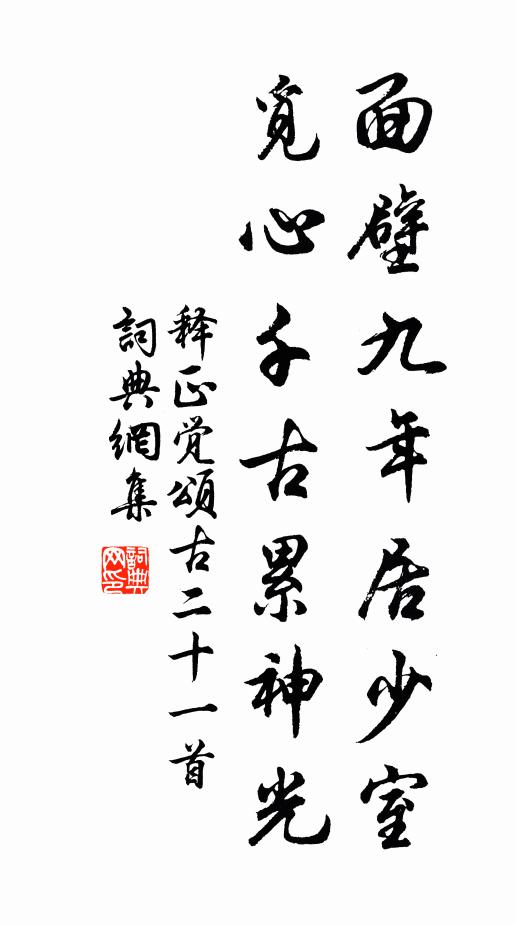 面壁九年居少室
觅心千古累神光
释正觉頌古二十一首
詞典網集
詞典网印